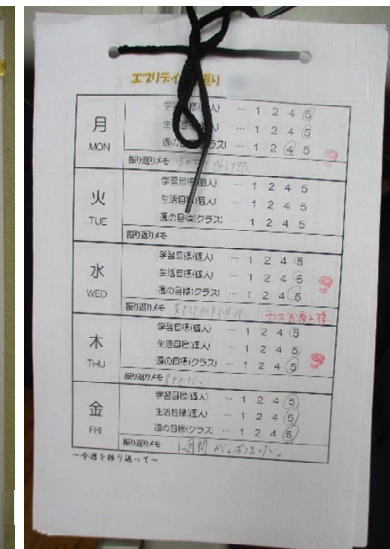 エブリデイ振り返り
月
MON
学習目標(個人) … 1 2 4 5
生活目標(個人) … 1 2 4 5
週の目標(クラス) … 1 2 4 5
振り返りメモ
火
TUE
学習目標(個人) … 1 2 4 5
生活目標(個人) … 1 2 4 5
週の目標(クラス) … 1 2 4 5
振り返りメモ
水
WED
学習目標(個人) … 1 2 4 5
生活目標(個人) … 1 2 4 5
週の目標(クラス) … 1 2 4 5
振り返りメモ
木
THU
学習目標(個人) … 1 2 4 5
生活目標(個人) … 1 2 4 5
週の目標(クラス) … 1 2 4 5
振り返りメモ
金
FRI
学習目標(個人) … 1 2 4 5
生活目標(個人) … 1 2 4 5
週の目標(クラス) … 1 2 4 5
振り返りメモ 1週間がんばりました。
～今週を振り返って～